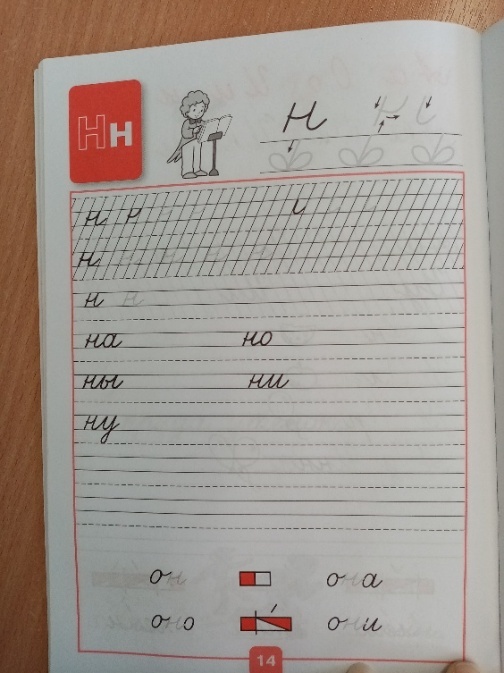 Нн н
н
н
н н
на но
ны ни
ну
он она
оно они
14